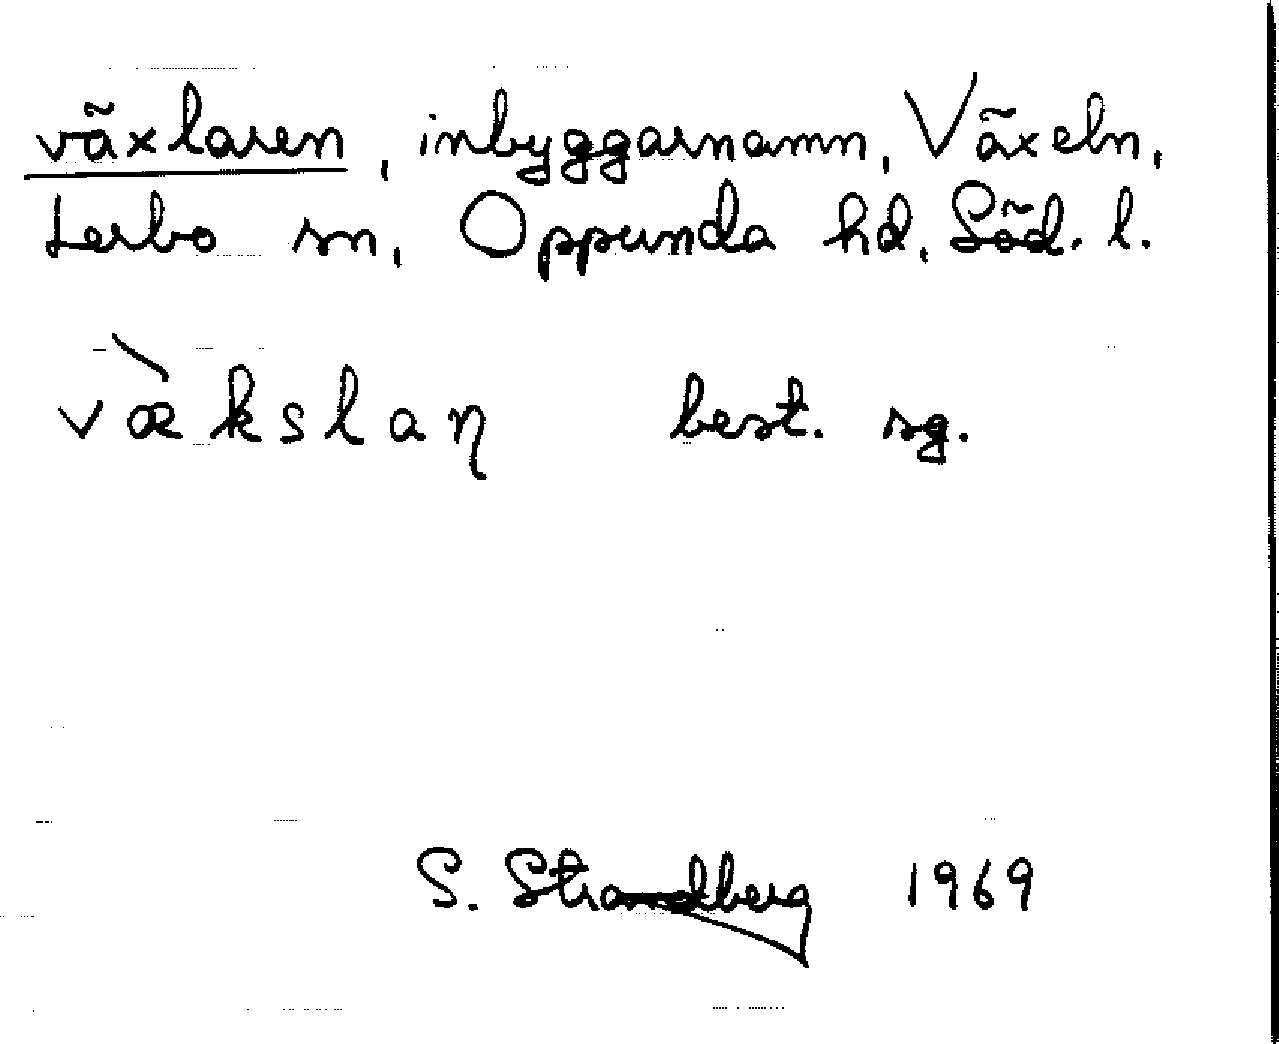 växlaren, inbyggarnamn, Växeln,
Lerbo sn, Oppunda hd, Söd. l.
væ̀kslaη best. sg.
S. Strandberg 1969